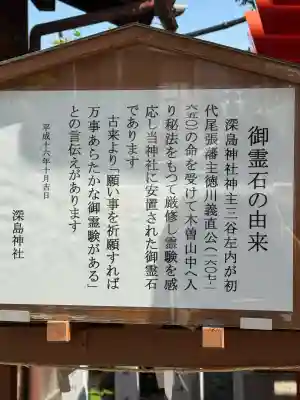 御霊石の由来
深島神社神主三谷左内が初
代尾張藩主徳川義直公（一六〇七-一
六五〇）の命を受けて木曽山中へ入
り秘法をもって厳修し霊験を感
応し当神社に安置された御霊石
であります
古来より「願い事を祈願すれば
万事あらたかな御霊験がある」
との言伝えがあります
平成十六年十月吉日
深島神社